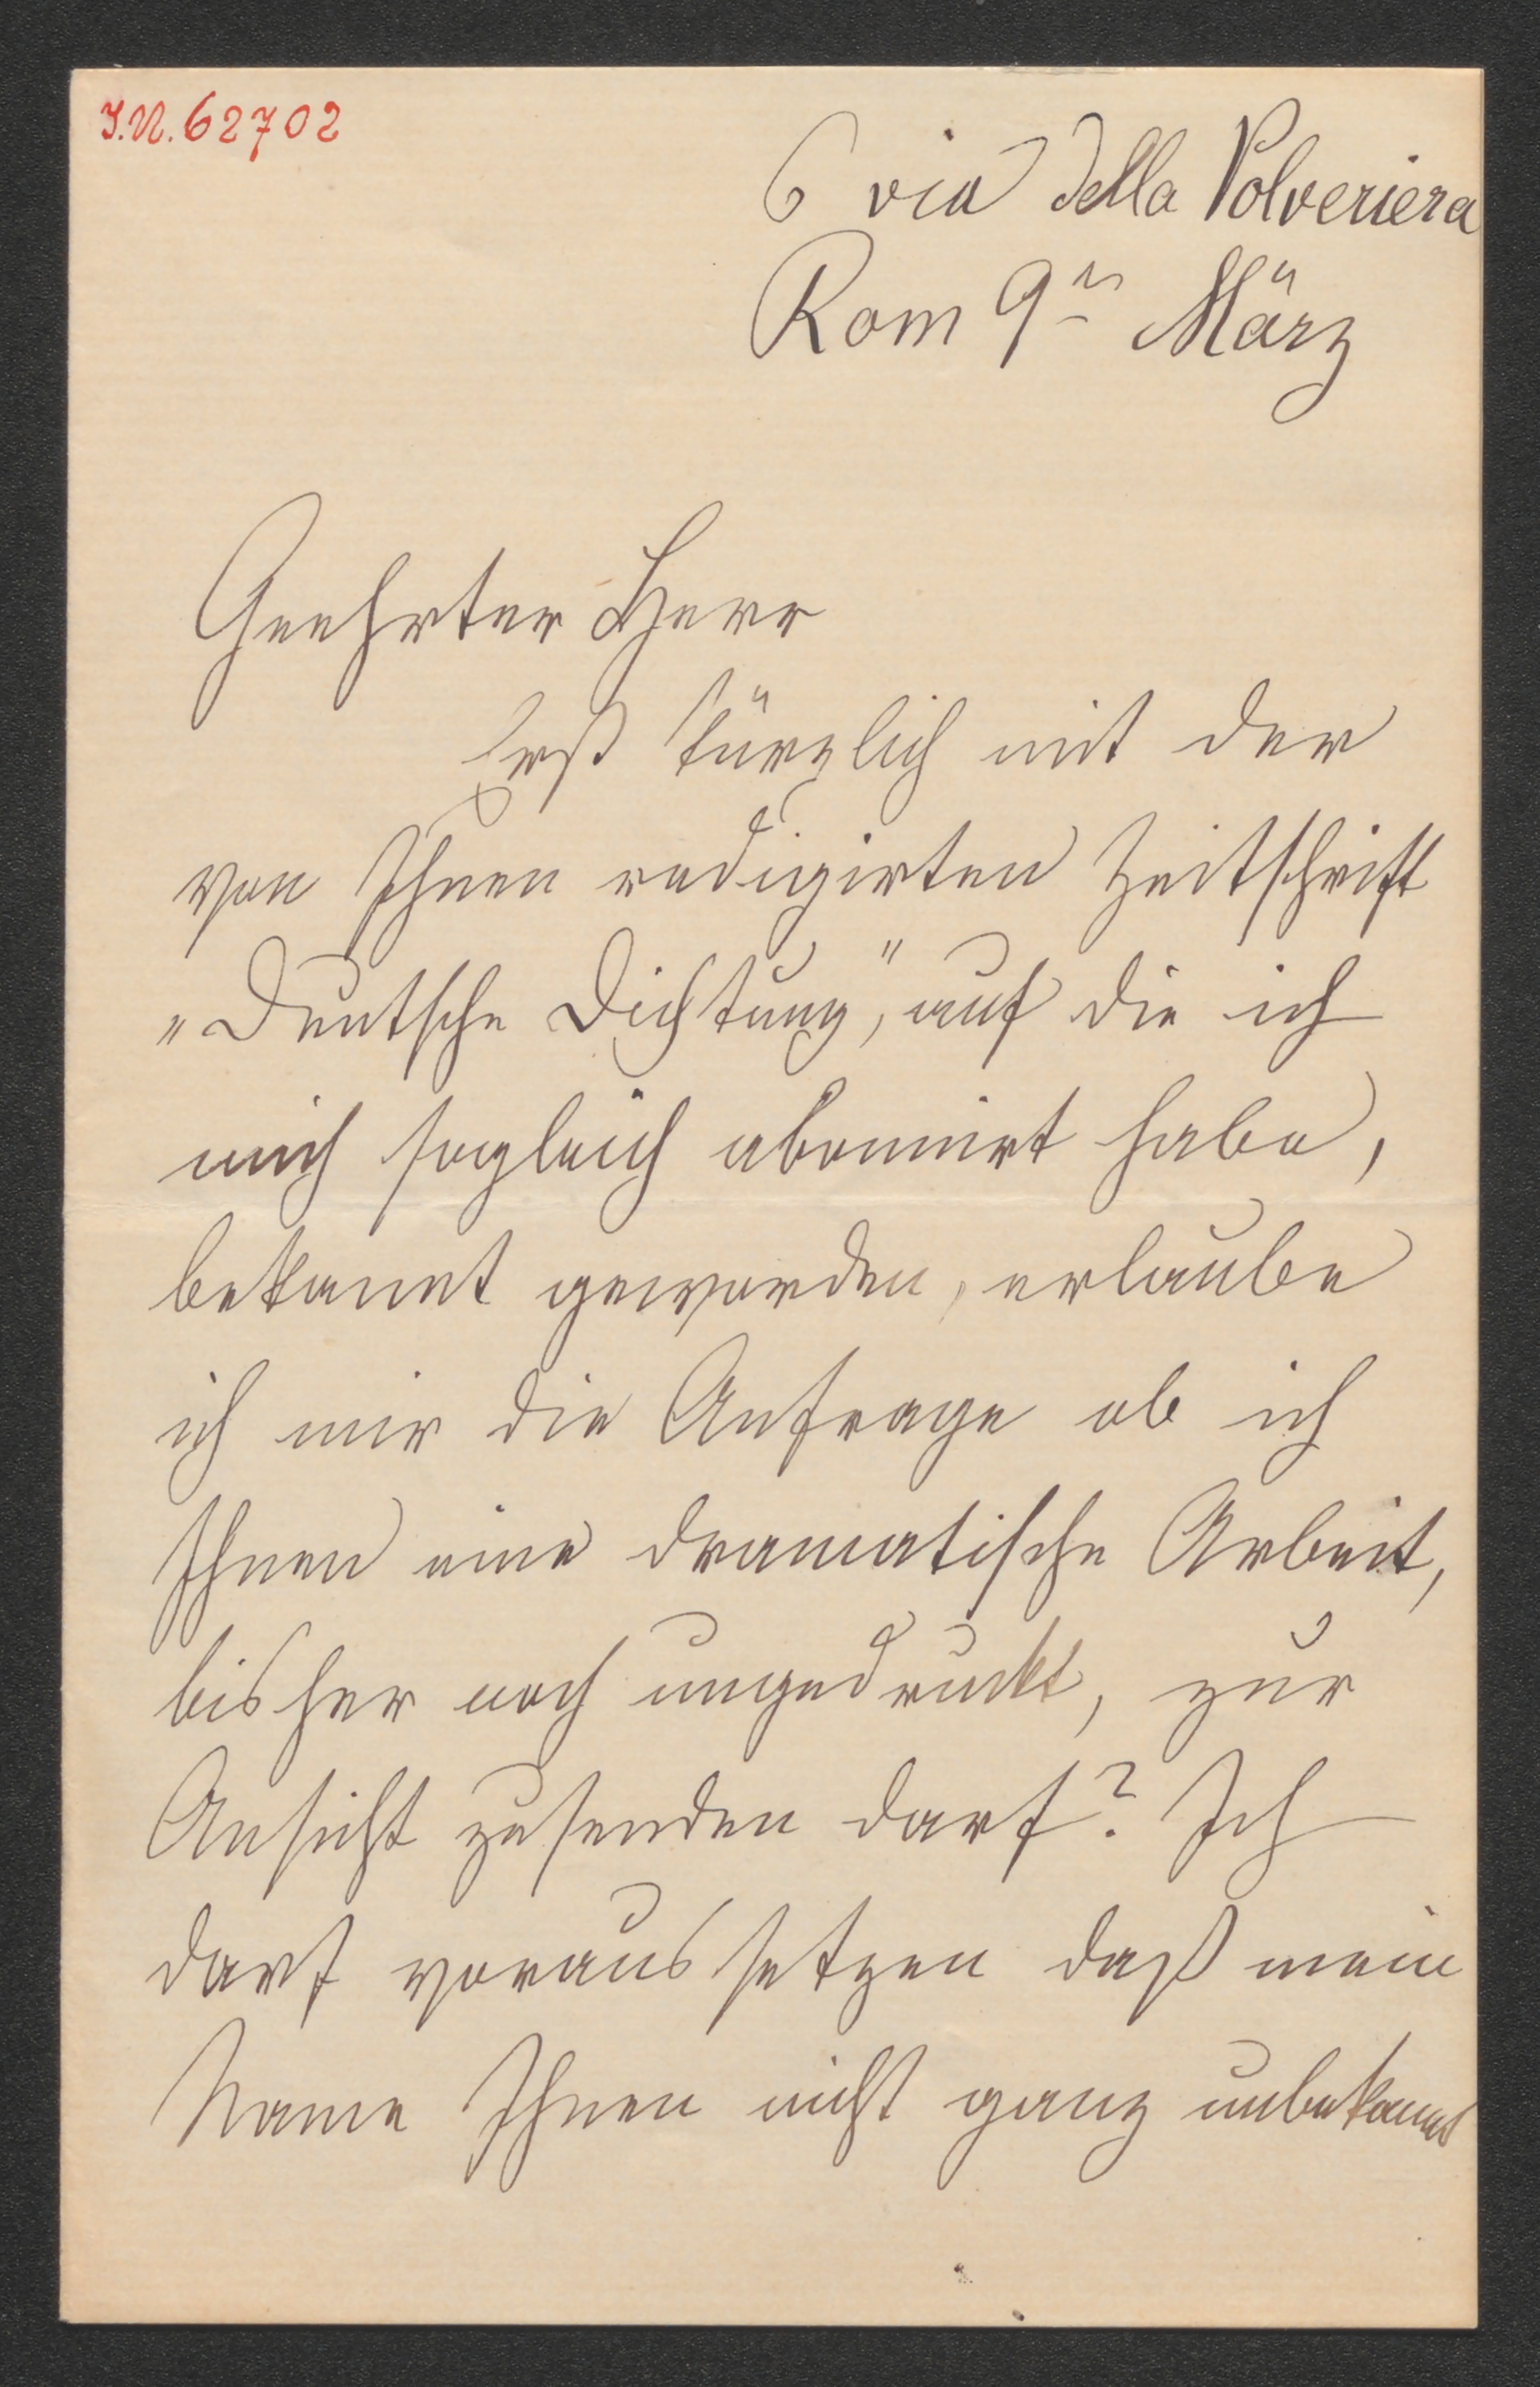 I.N. 62702
6 via della Polveriera
Rom 9ten März
Geehrter Herr
Erst kürzlich mit der
von Ihnen redigirten Zeitschrift
„Deutsche Dichtung", auf die ich
mich sogleich abonnirt habe,
bekannt geworden, erlaube
ich mir die Anfrage ob ich
Ihnen eine dramatische Arbeit,
bisher noch ungedruckt, zur
Ansicht zusenden darf? Ich
darf voraussetzen daß mein
Name Ihnen nicht ganz unbekannt